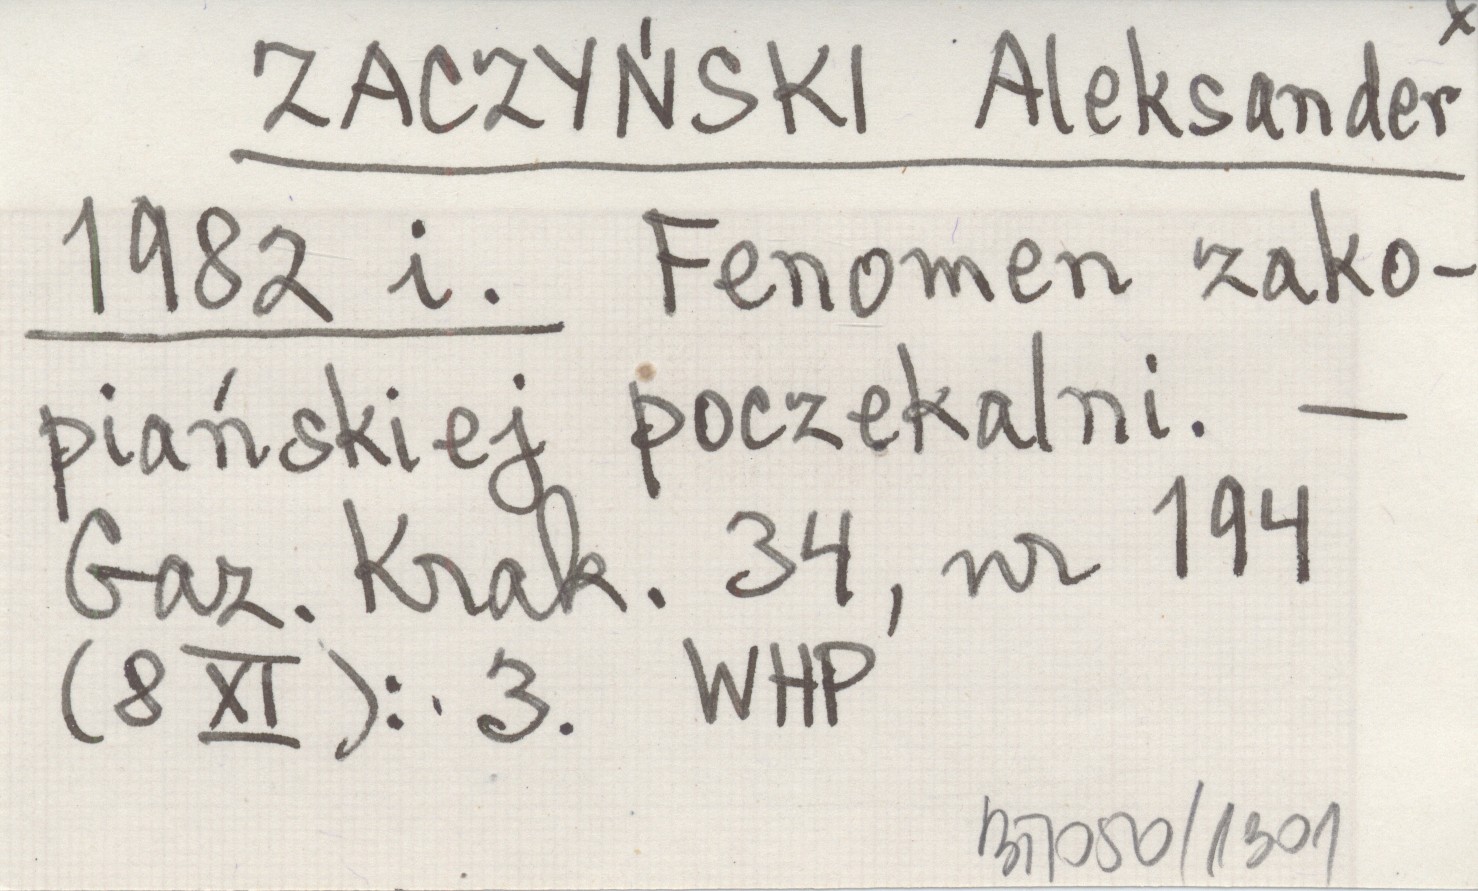 ZACZYŃSKI Aleksander x
1982 i. Fenomen zako-
piańskiej poczekalni. —
Gaz. Krak. 34, nr 194
(8 XI): 3. WHP